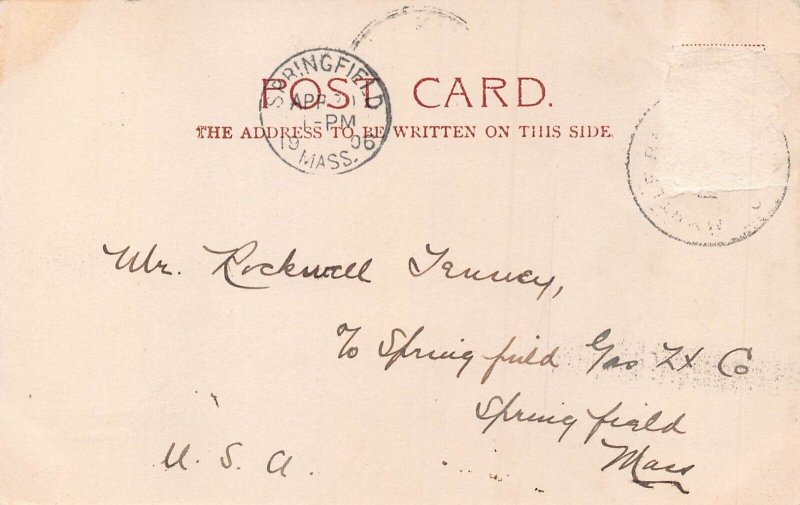 POST CARD.
THE ADDRESS TO BE WRITTEN ON THIS SIDE.
SPRINGFIELD
APR
1-PM
1906
MASS.
Mr. Rockwell Tenney,
c/o Springfield Gas Lt Co
Springfield
Mass
U. S. A.